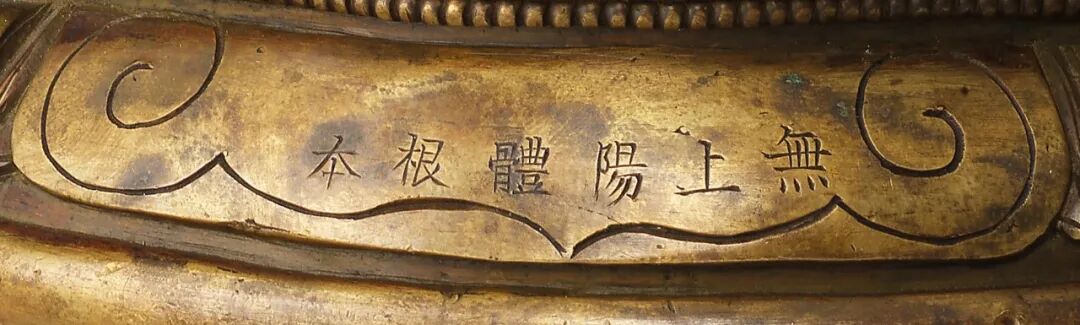 無上陽體根本